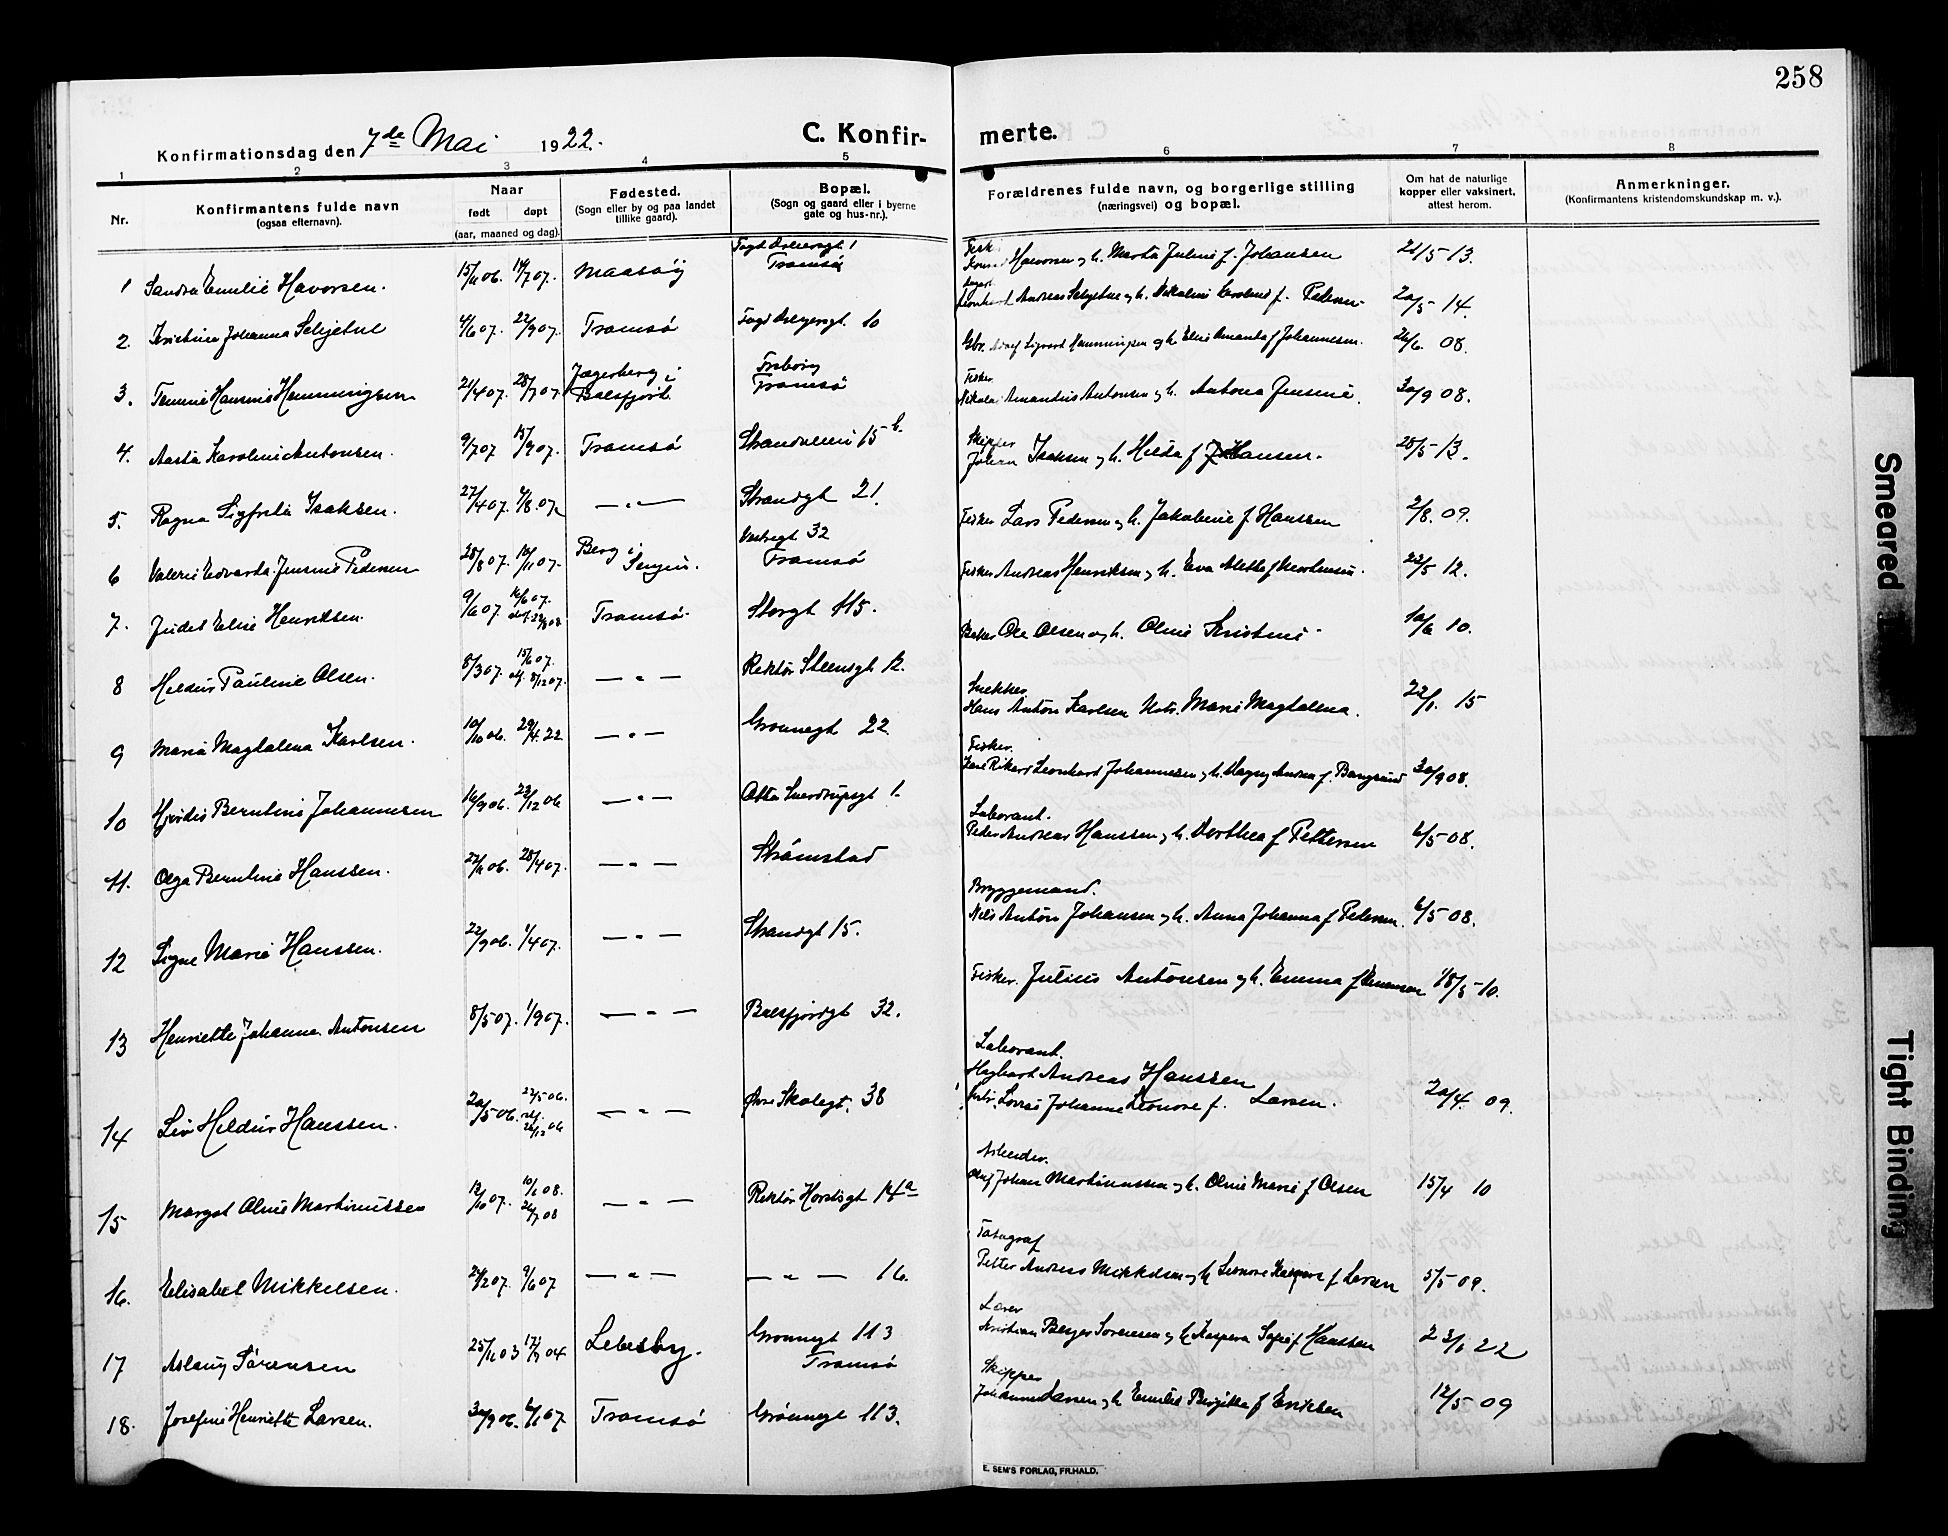 258
Konfirmationsdag den 7de Mai 1922.
C. Konfir-
merte.
1 2 3 4 5 6 7 8
Nr.
Konfirmantens fulde navn
(ogsaa efternavn).
Naar
født døpt
(aar, maaned og dag).
Fødested.
(Sogn eller by og paa landet
tillike gaard).
Bopæl.
(Sogn og gaard eller i byerne
gate og hus-nr.).
Forældrenes fulde navn, og borgerlige stilling
(næringsvei) og bopæl.
Om hat de naturlige
kopper eller vaksinert,
attest herom.
Anmerkninger.
(Konfirmantens kristendomskundskap m. v.).
1 Sandra Emilie Havorsen. 15/11 06. 14/7 07. Maasøy
Tromsø
Halvorsen og h. Marta Juline f. Johansen 21/5 13.
2. Johanna Seljelue 4/6 07. 22/9 07. Tromsø 10
Andreas og h. f. Pedersen 20/5 - 14.
3. Hansine Hemmingsen 21/4 07. 28/7 07. Jægerberg i
Balsfjord. Tromsø
Sigvard Hemmingsen og h. Elen Amanda f Johannesen. 26/6. 08.
4. Aasta Karoline Antonsen. 9/7 07 15/9 07. Tromsø Strandveien 15 b.
Fisker
Nikolai Amandus Antonsen og h. Antona Jensine. 30/9 08.
5. Ragna Sigfrida Isaksen. 27/4 07. 4/8. 07 — „ — Strandgt 21.
Skipper
Johan Isaksen og h. Hilda f Hansen. 28/5 - 13.
6 Valerie Edvarda Jensine Pedersen 28/8 07. 10/11 07. Berg i
Senjen. Vestregt 32
Tromsø
Fisker Lars Pedersen og h. Jakobine f. Hanssen 2/8. 09.
7. Judit Elise Henriksen. 9/6 07. 16/6 07. Tromsø Storgt 115.
Fisker Andreas Henriksen og h. Eva Aletta f 22/5 12.
8 Hildur Pauline Olsen. 8/3 07. 15/6 07. 8/12 07. — „ — Rektor Steensgt 12.
Baker Ole Olsen og h. Oline Kristine 10/6 10.
9 Maria Magdalena Karlsen. 10/10 06. 29/4. 22 — „ — Grønnegt 22.
Snekker
Hans Anton Karlsen Hstr. Marie Magdalena. 22/1. 15
10 Hjørdis Berntine Johannesen 16/9 06. 23/12 06 — „ — Otto Sverdrupsgt 1.
Fisker.
Rikard Leonhard Johannesen og h. Dagny Andrea f. 30/9 08.
11. Olga Berntine Hanssen. 22/11 06. 28/4 07. — „ — Strømstad
Laborant.
Peder Andreas Hanssen og h. Dorthea f Pettersen 6/5 08.
12 Signe Marie Hanssen. 22/9 06. 1/4 07. — „ — Strandgt 15.
Bryggemand.
Nils Anton Johansen og h. Anna Johanna f Pedersen. 6/5 08.
13 Henriette Johanne Antonsen 8/5 07. 1/9 07. — „ — Balsfjordgt 32.
Fisker. Julius Antonsen og h. Emma f 18/5 10.
14 Liv Hildur Hanssen. 20/5 06. 27/5 06. 26/12 06 — „ — Øvre Skolegt. 38
Laborant.
Hagbart Andreas Hanssen
Johanne Leonore f. Larsen. 20/4. 09.
15 Margot Oline Martinussen 12/10 07. 10/1 08. 26/7 08 — „ — Rektor Horstsgt 14a
Arbeider.
Olaf Johan Martinussen og h. Oline Marie f Olsen 15/4 10
16. Elisabet Mikkelsen. 24/2 07. 9/6 07 — „ — — „ — 16.
Fotograf
Petter Andreas Mikkelsen og h Leonore f Larsen 5/5 09.
17 Aslaug Sørensen 25/11 03 17/7 04 Lebesby. Grønnegt 113
Tromsø
Lærer
Kristian Berger Sørensen og h Kaspara f Hanssen 23/1 22
18. Josefine Henriette Larsen. 30/9 06. 6/1 07 Tromsø Grønnegt 113.
Skipper
Johannes Larsen og h Emilie Birgitta f Eriksen 12/5 09
E. SEM'S FORLAG, FR.HALD.
Smeared
Tight Binding